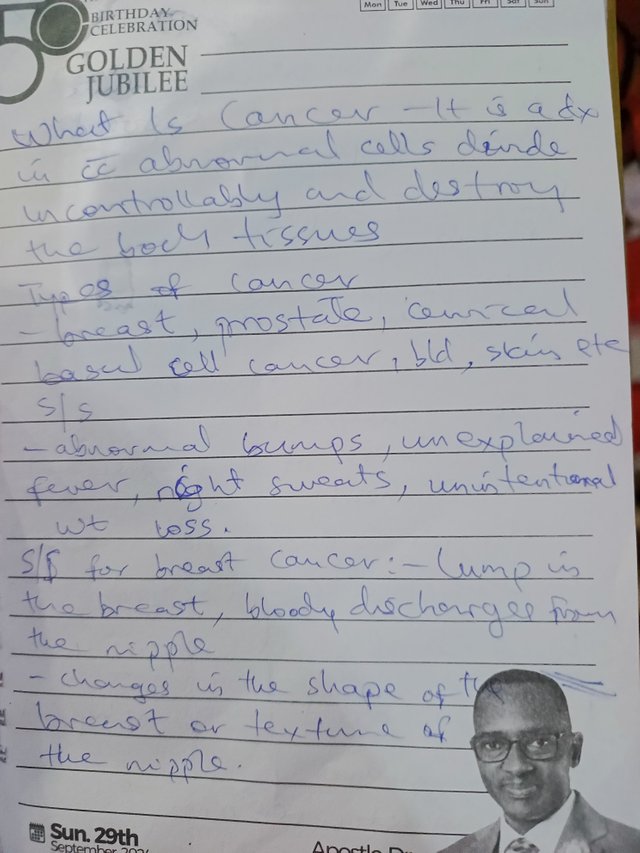 50
BIRTHDAY
CELEBRATION
GOLDEN
JUBILEE
Mon Tue Wed Thu Fri Sat Sun
What Is Cancer - It is a dx
in c̄ abnormal cells divide
uncontrollably and destroy
the body tissues
Types of cancer
- breast, prostate, cervical
basal cell cancer, bld, skin etc
S/s
- abnormal bumps, unexplained
fever, night sweats, unintentional
wt loss.
S/S for breast cancer:- Lump in
the breast, bloody discharges from
the nipple
- changes in the shape of the
breast or texture of
the nipple.
Sun. 29th
September
Apostle